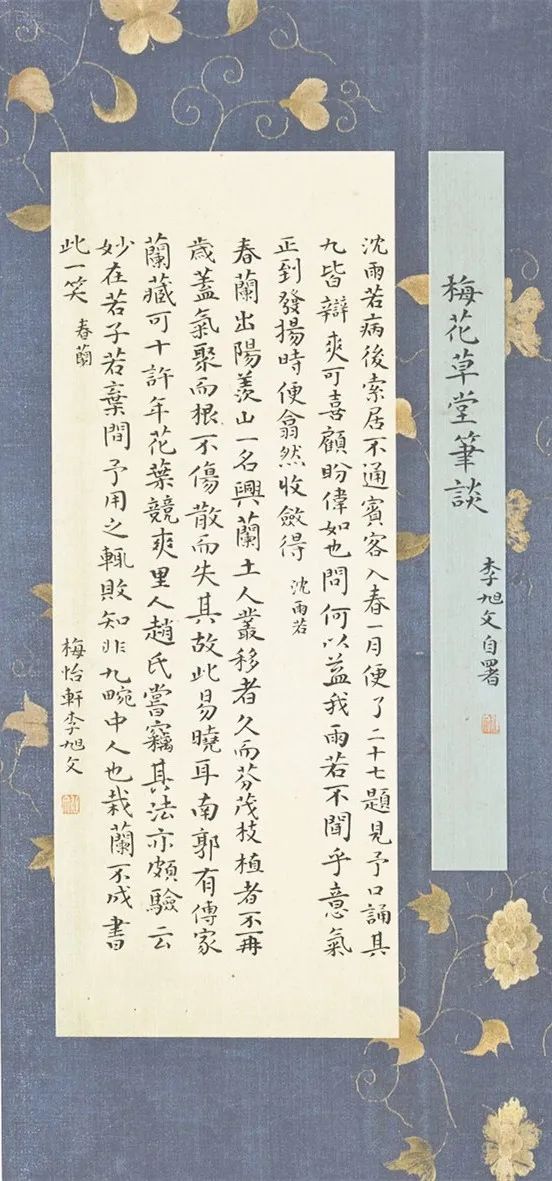 梅花草堂筆談
李旭文自署
沈雨若病後索居不通賓客入春一月便了二十七題見予口誦其
九皆辯爽可喜顧盼偉如也問何以益我雨若不聞乎意氣
正到發揚時便翕然收斂得 沈雨若
春蘭出陽羨山一名興蘭土人叢移者久而芬茂枝植者不再
歲蓋氣聚而根不傷散而失其故此易曉耳南郭有傳家
蘭藏可十許年花葉競爽里人趙氏嘗竊其法亦頗驗云
妙在若子若葉間予用之輒敗知非九畹中人也栽蘭不成書
此一笑 春蘭
梅怡軒李旭文